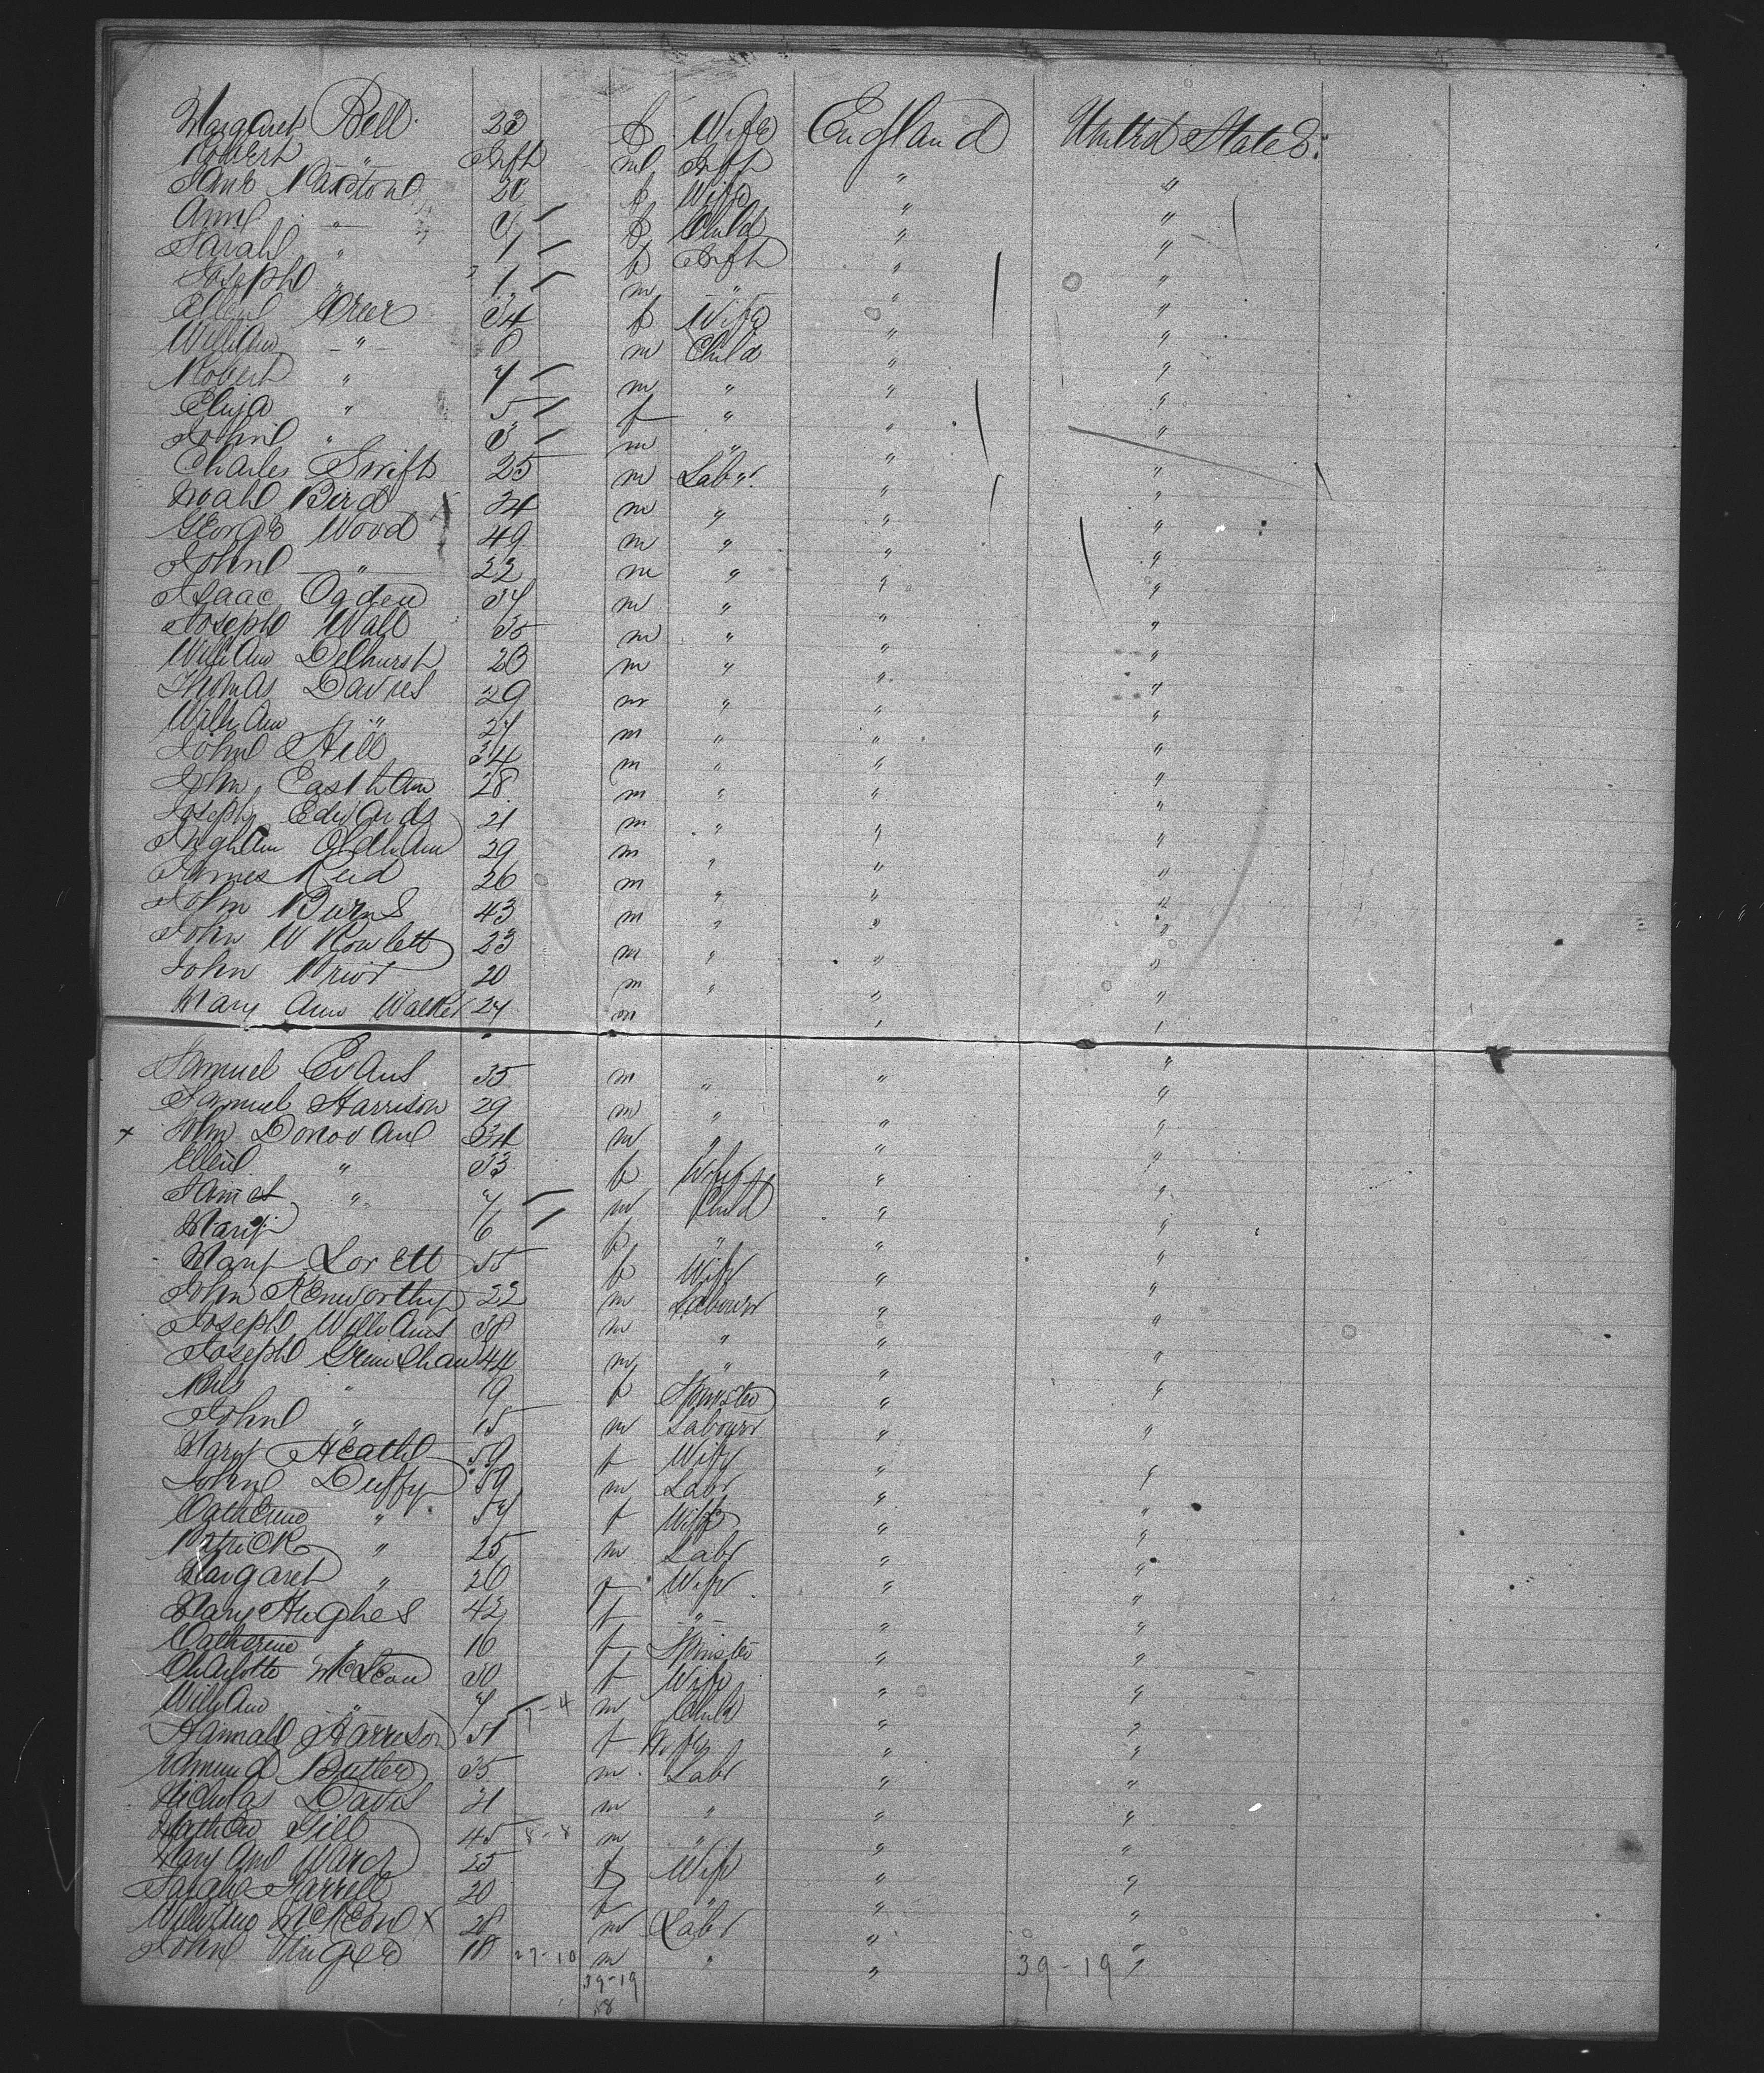 Margaret Bell 23 f Wife England United States.
Robert " Inft m Inft " "
Jane 20 f Wife " "
Ann " f Child " "
Sarah " 1 f Inft " "
Joseph " 1 m " " "
Ellen Greer 34 f Wife " "
William " 8 m Child " "
Robert " 7 m " " "
Eliza " 5 f " " "
John " 3 m " " "
Charles Swift 25 m Labr. " "
Noah Bird 24 m " " "
George Wood 49 m " " "
John " 22 m " " "
Isaac Ogden 34 m " " "
Joseph Wall 35 m " " "
William Delhurst 23 m " " "
Thomas Davies 29 m " " "
William " 27 m " " "
John Hill 34 m " " "
John Eastham 28 m " " "
Joseph Edwards 21 m " " "
Ingham Oldham 29 m " " "
James Reid 26 m " " "
John Burns 43 m " " "
John W Rowlett 23 m " " "
John Prior 20 m " " "
Mary Ann Walker 24 m " "
Samuel Evans 35 m " " "
Samuel Harrison 29 m " " "
x John Donovan 34 m " " "
Ellen " 33 f Wife " "
James " 7 m Child " "
Mary 6 f " " "
Mary Lovett 35 f Wife " "
John Kenworthy 22 m Labourr " "
Joseph Williams 38 m " " "
Joseph Grimshaw 44 m " " "
" 19 f Spinster " "
John " 15 m Labourr " "
Mary Heath 39 f Wife " "
John Duffy 59 m Labr " "
Catherine " 54 f Wife " "
Patrick " 25 m Labr " "
Margaret " 26 f Wife " "
Mary Hughes 42 f " " "
Catherine " 16 f Spinster " "
Charlotte McLean 30 f Wife " "
William " 7 7-4 m Child " "
Hannah Harrison 31 f Wife " "
Edmund Butler 35 m Labr " "
Nicholas Davis 21 m " " "
Mathew Gill 45 8-8 m " " "
Mary Ann Ward 25 f Wife " "
Sarah Farrell 20 f " " "
William McKeon x 28 m Labr " "
John 18 27-10 m " " 39-19 "
39-19